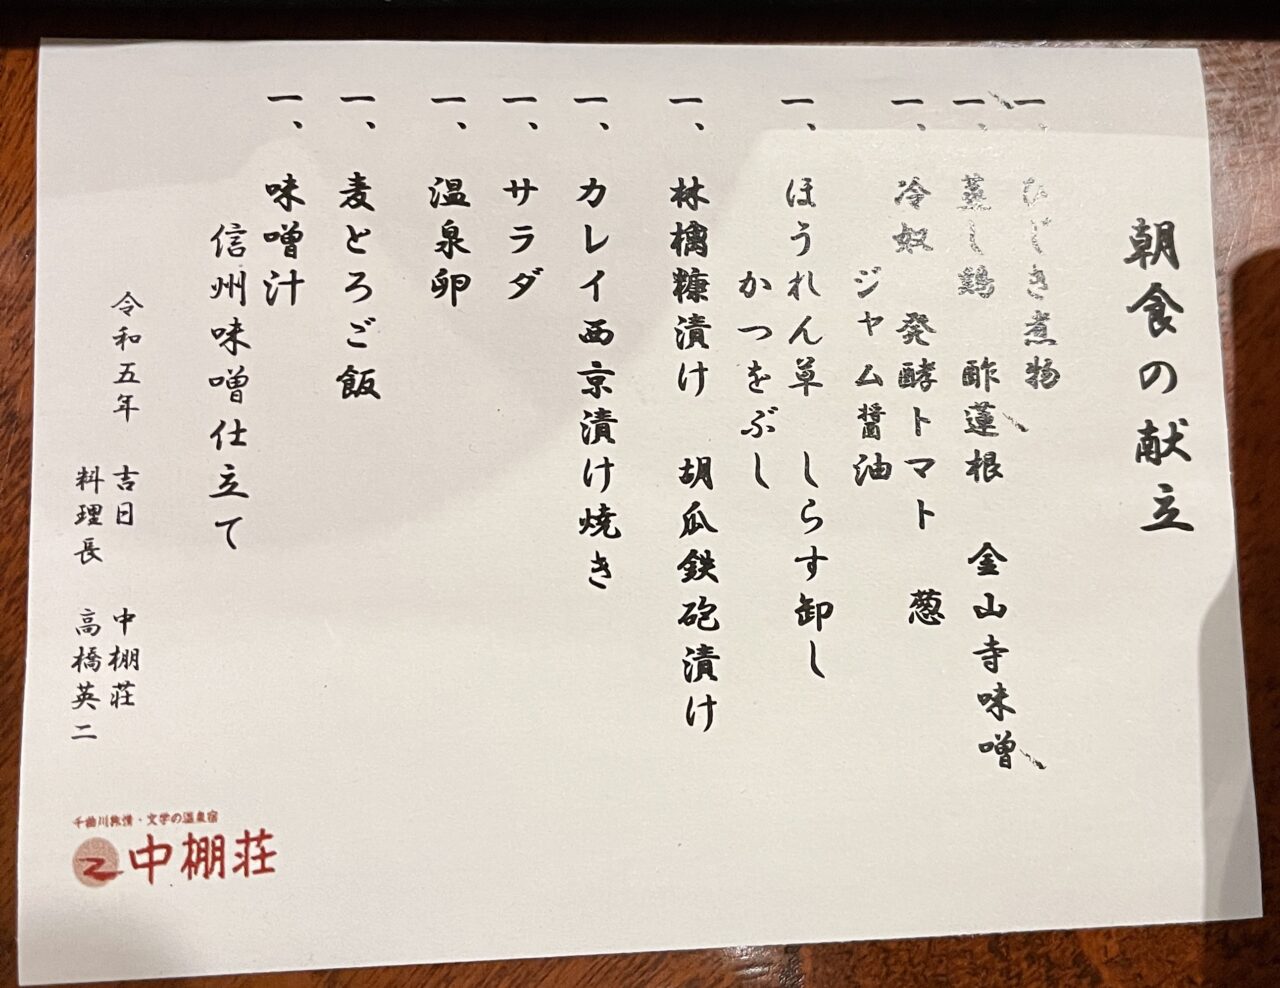 朝食の献立
一、ひじき煮物
一、蒸し鶏 酢蓮根 金山寺味噌
一、冷奴 発酵トマト 葱
ジャム醤油
一、ほうれん草 しらす卸し
かつをぶし
一、林檎糠漬け 胡瓜鉄砲漬け
一、カレイ西京漬け焼き
一、サラダ
一、温泉卵
一、麦とろご飯
一、味噌汁
信州味噌仕立て
令和五年 吉日 中棚荘
料理長 高橋英二
千曲川旅情・文学の温泉宿
中棚荘